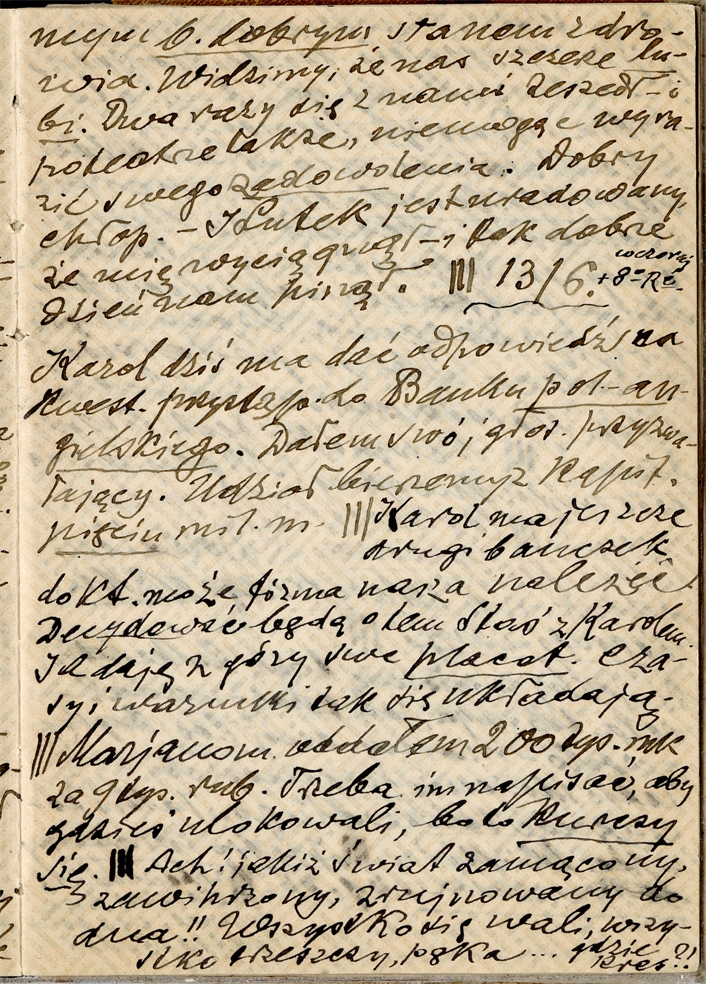 mym b. dobrym stanem zdro-
wia. Widzimy, że nas szczerze lu-
bi. Dwa razy się z nami zeszedł – i
po teatrze także, nie mogąc wyra-
zić swego zadowolenia. Dobry
chłop. – I Lutek jest uradowany
że mię wyciągnął – i tak dobrze
dzień nam minął. ||| 13/6. wczoraj +8° Re.
Karol dziś ma dać odpowiedź na
kwest. przystąp. do Banku pol-an-
gielskiego. Dałem swój głos przyzwa-
lający. Udział bierzemy z kapit.
pięciu mil. m. ||| Karol ma jeszcze
drugi banczek
do kt. może firma nasza należeć
Decydować będą o tem Staś z Karolem.
Ja daję z góry swe placet. Cza-
sy i warunki tak się układają.
||| Marjanom oddałem 200 tys. mk
za 9 tys. rub. Trzeba im napisać, aby
gdzieś ulokowali, bo to kurczy
się. ||| Ach! jakiż świat zamącony,
zawichrzony, zrujnowany do
dna!! Wszystko się wali, wszy-
stko trzeszczy, pęka ... gdzie
kres?!